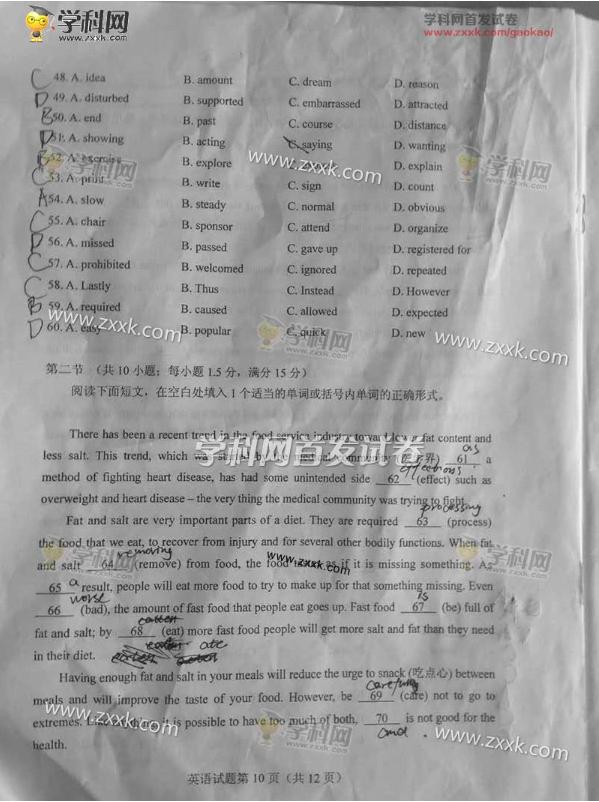 学科网
www.zxxk.com
学科网首发试卷
www.zxxk.com/gaokao/
C 48. A. idea B. amount C. dream D. reason
D 49. A. disturbed B. supported C. embarrassed D. attracted
B 50. A. end B. past C. course D. distance
D 51. A. showing B. acting C. saying D. wanting
B 52. A. exercise B. explore D. explain
C 53. A. print B. write C. sign D. count
A 54. A. slow B. steady C. normal D. obvious
C 55. A. chair B. sponsor C. attend D. organize
D 56. A. missed B. passed C. gave up D. registered for
C 57. A. prohibited B. welcomed C. ignored D. repeated
C 58. A. Lastly B. Thus C. Instead D. However
B 59. A. required B. caused C. allowed D. expected
D 60. A. easy B. popular C. quick D. new
学科网
www.zxxk.com
第二节 (共 10 小题;每小题 1.5 分,满分 15 分)
阅读下面短文,在空白处填入 1 个适当的单词或括号内单词的正确形式。
学科网首发试卷
There has been a recent trend in the food service industry toward lower fat content and
less salt. This trend, which was started by the medical community 61 as a
method of fighting heart disease, has had some unintended side 62 (effect) such as
overweight and heart disease – the very thing the medical community was trying to fight.
processing
Fat and salt are very important parts of a diet. They are required 63 (process)
the food that we eat, to recover from injury and for several other bodily functions. When fat
removing
and salt 64 (remove) from food, the food as if it is missing something. As
www.zxxk.com
65 a result, people will eat more food to try to make up for that something missing. Even
worse is
66 (bad), the amount of fast food that people eat goes up. Fast food 67 (be) full of
fat and salt; by 68 (eat) more fast food people will get more salt and fat than they need
in their diet. ate
Having enough fat and salt in your meals will reduce the urge to snack (吃点心) between
meals and will improve the taste of your food. However, be 69 (care) not to go to
extremes. it is possible to have too much of both, 70 is not good for the
health. and
www.zxxk.com
学科网
英语试题第 10 页(共 12 页)